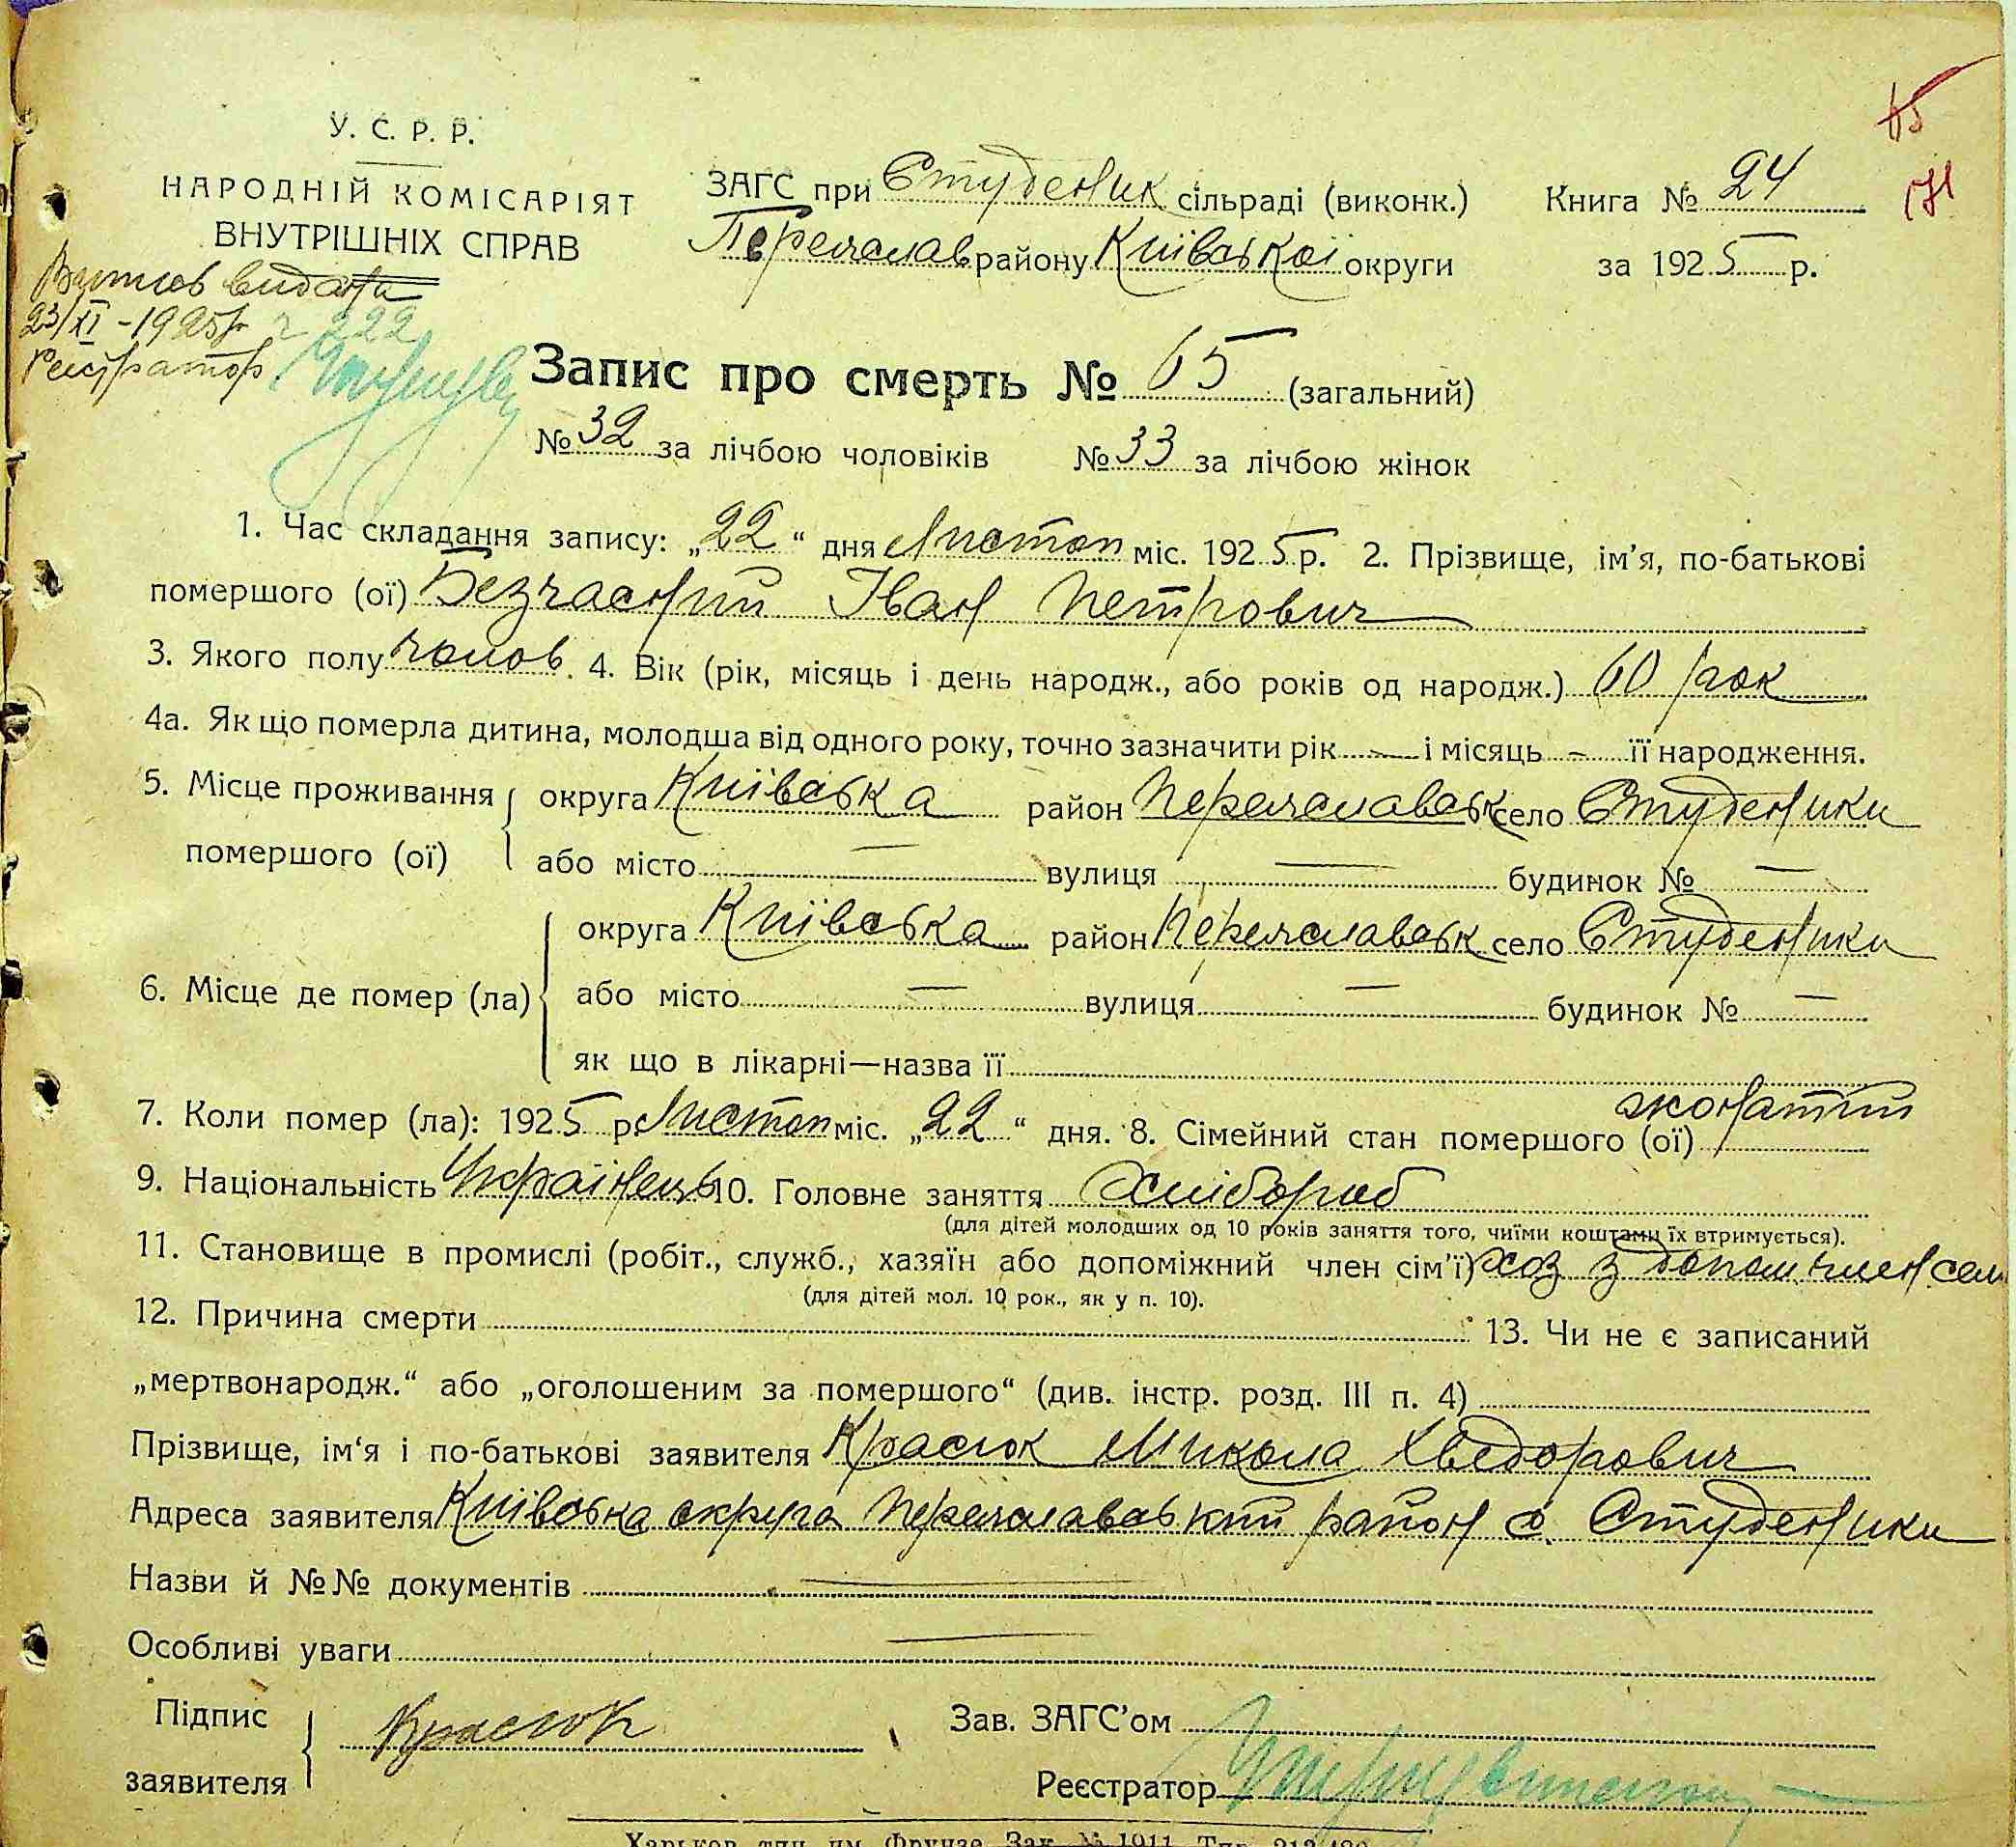 65
171
У. С. Р. Р.
НАРОДНІЙ КОМІСАРІЯТ
ВНУТРІШНІХ СПРАВ
ЗАГС при Студеник сільраді (виконк.)
Переяслав району Київської округи
Книга № 24
за 1925 р.
видана
23/XI - 1925 р. 222
Реєстратор
Запис про смерть № 65 (загальний)
№ 32 за лічбою чоловіків № 33 за лічбою жінок
1. Час складання запису: „22“ дня Листоп міс. 1925 р. 2. Прізвище, ім’я, по-батькові
помершого (ої) Безчасний Іван Петрович
3. Якого полу чолов. 4. Вік (рік, місяць і день народж., або років од народж.) 60 рок
4а. Як що померла дитина, молодша від одного року, точно зазначити рік — і місяць — її народження.
5. Місце проживання помершого (ої) округа Київська район Переяславськ село Студеники
або місто — вулиця — будинок № —
6. Місце де помер (ла) округа Київська район Переяславськ село Студеники
або місто — вулиця — будинок № —
як що в лікарні—назва її
7. Коли помер (ла): 1925 р. Листоп міс. „22“ дня. 8. Сімейний стан помершого (ої) жонатий
9. Національність Українець 10. Головне заняття Хлібороб
(для дітей молодших од 10 років заняття того, чиїми коштами їх втримується).
11. Становище в промислі (робіт., служб., хазяїн або допоміжний член сім’ї) хоз з допом. член сем
(для дітей мол. 10 рок., як у п. 10).
12. Причина смерти 13. Чи не є записаний
„мертвонародж.“ або „оголошеним за помершого“ (див. інстр. розд. III п. 4)
Прізвище, ім‘я і по-батькові заявителя Красюк Микола Хведорович
Адреса заявителя Київська округа Переяславський район с. Студеники
Назви й №№ документів —
Особливі уваги —
Підпис заявителя Красюк
Зав. ЗАГС’ом
Реєстратор
Харьков, тип. им. Фрунзе. Зак. № 1911. Тир.